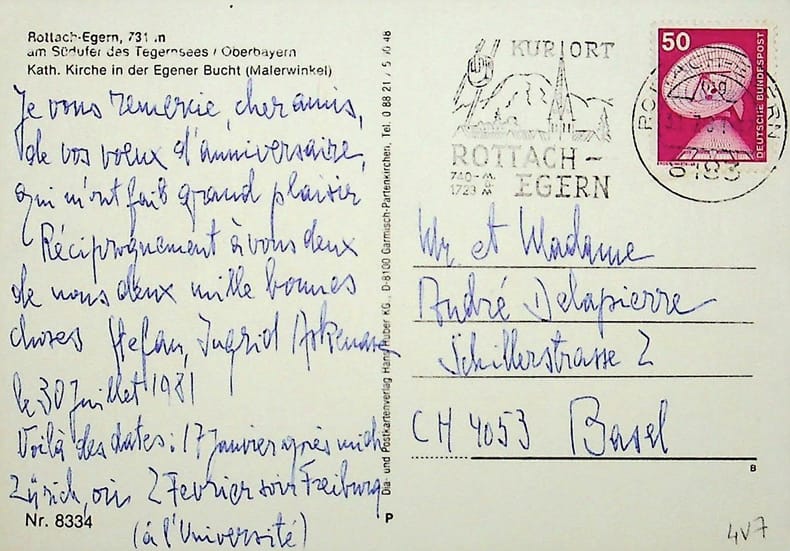 Rottach-Egern, 731 m
am Südufer des Tegernsees / Oberbayern
Kath. Kirche in der Egener Bucht (Malerwinkel)
Je vous remercie, cher amis,
de vos voeux d'anniversaire,
qui m'ont fait grand plaisir
Réciproquement à vous deux
de nous deux mille bonnes
choses Stefan, Ingrid Askenase
le 30 Juillet 1981
Voilà des dates: 17 Janvier après midi
Zürich, 2 Fevrier soir Freiburg
(à l'Université)
Nr. 8334
P
Dia- und Postkartenverlag Hans Huber KG., D-8100 Garmisch-Partenkirchen, Tel. 0 88 21 / 5 48
KURORT
ROTTACH-
EGERN
740-
1723 M
50
DEUTSCHE BUNDESPOST
ROTTACH-EGERN
8183
Mr. et Madame
André Delapierre
Schillerstrasse 2
CH 4053 Basel
B
4V7